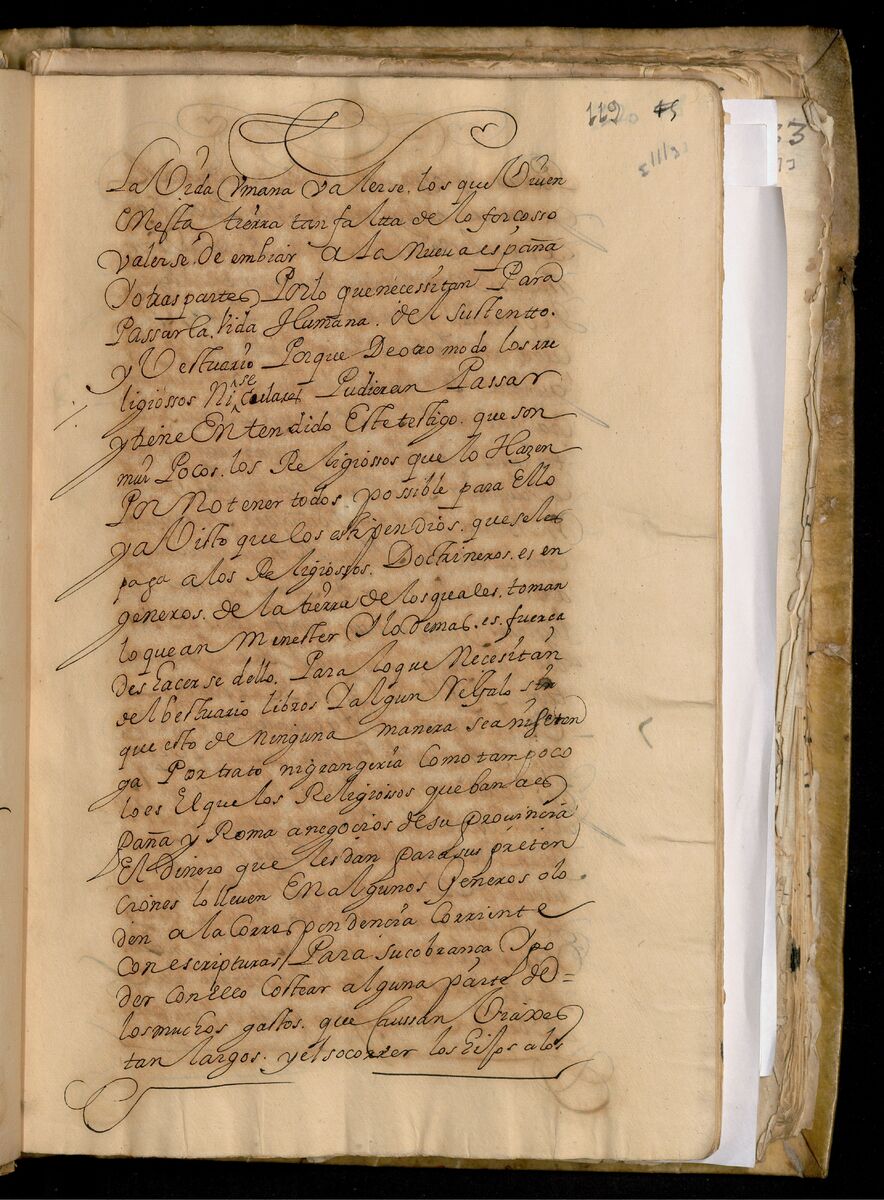 119 45
La Vida Vmana Valerse. los que Viuen
En esta tierra tan faltta de lo forcosso
Valerse. de embiar a la Nueua españa
Y otras partes Por lo que necessitan Para
Passar la Vida Humana. del sustentto.
y Vestuario Porque De otro modo los rre
ligiossos Ni seculares Pudieran Passar
y tiene Entendido Este testigo. que son
muy Pocos. los Religiossos que lo Hazen
Por No tener todos possible para Ello
y a Visto que los estipendios. que se les
paga a los Religiossos. Doctrineros. es en
generos. de la tierra de los quales. toman
lo que an Menester Y lo demas. es. fuerça
deshacerse dello. Para lo que Necesitan
del bestuario libros Y algun Regalo sin
que esto de ninguna manera sea ni se ten
ga Por trato ni grangeria Como tampoco
lo es El que los Religiossos que ban a es
paña y Roma a negocios de su prouincia
El Dinero que les dan para sus preten
ciones lo lleuen En algunos generos o lo
den a la Correspondencia Corriente
Con escripturas Para su cobrança Y po
der Con ello Costear alguna parte de =
los muchos gastos. que Caussan Viaxes
tan largos. y el socorrer los hijos a los